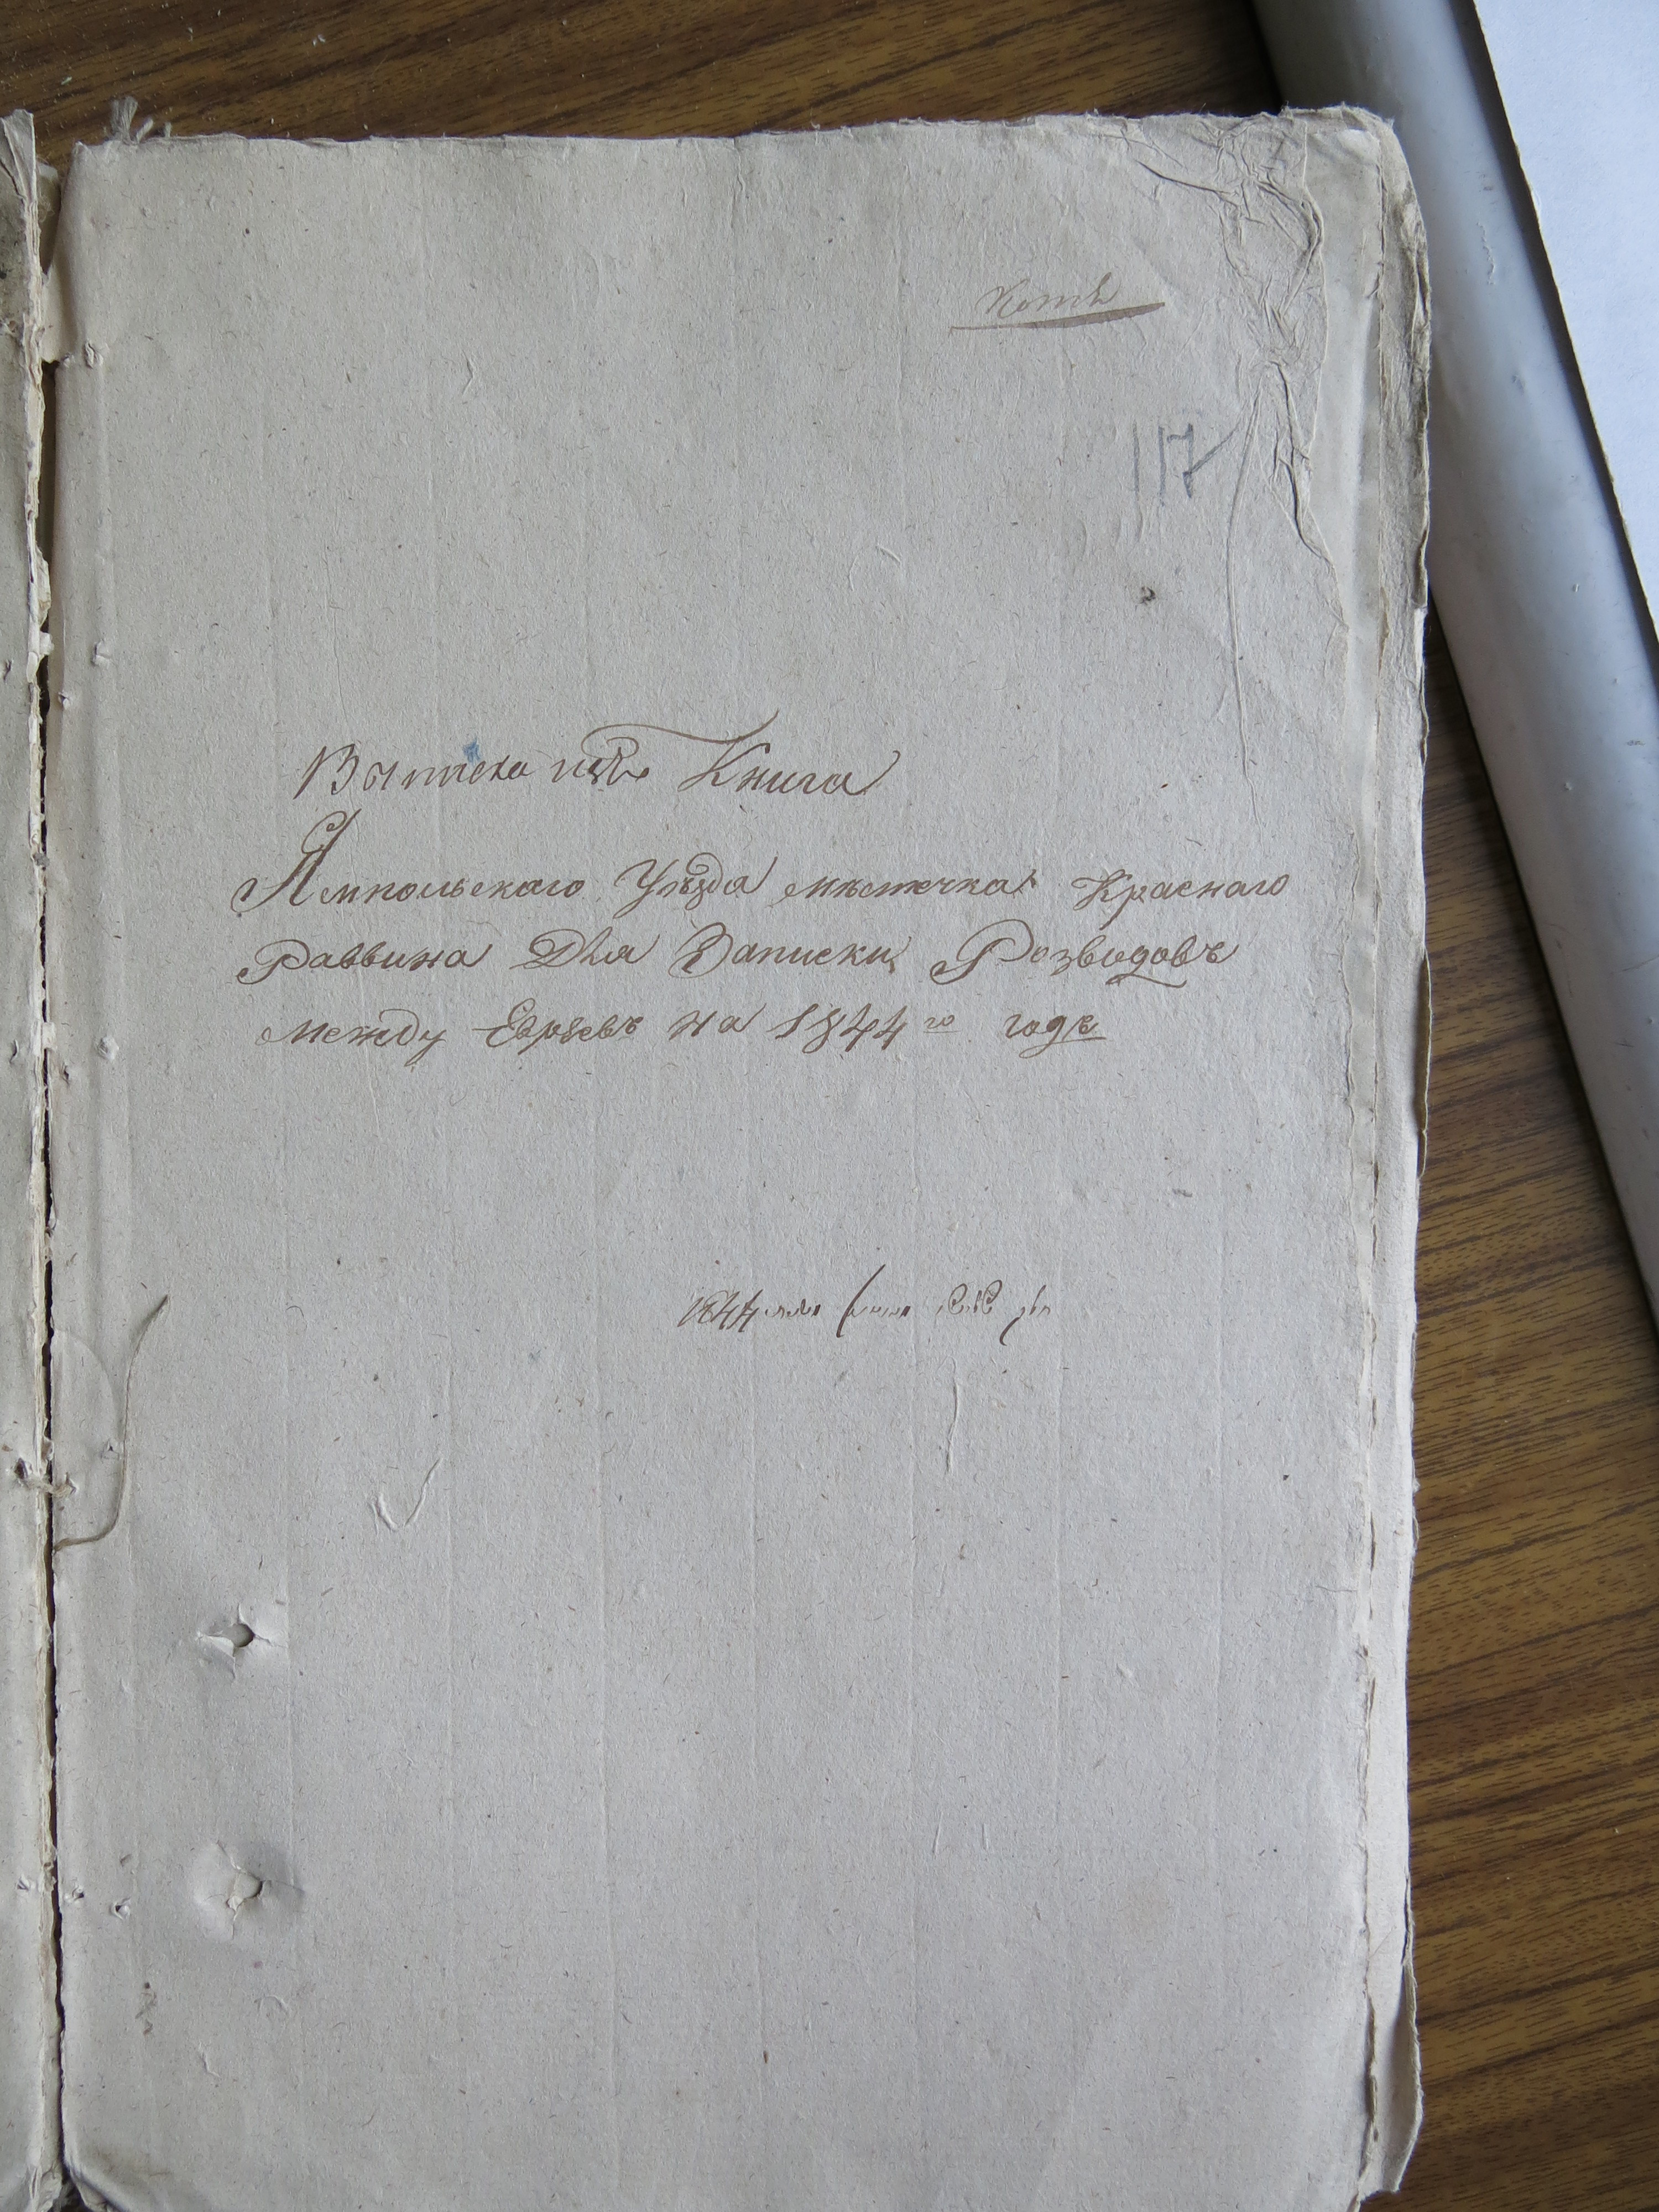 Копія
117
Выписка изъ Книга
Ямпольскаго Уѣзда мѣстечка Краснаго
Раввина Для Записки Розводовъ
между Евреевъ на 1844го годъ
1844